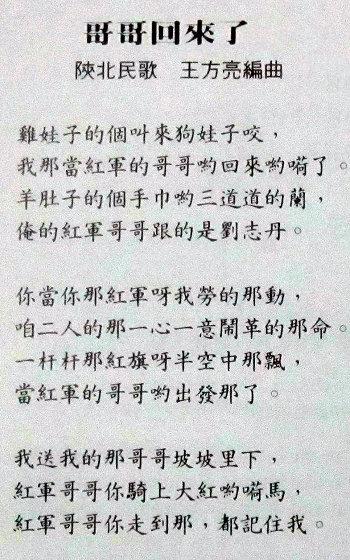 哥哥回來了
陝北民歌　王方亮編曲
雞娃子的個叫來狗娃子咬，
我那當紅軍的哥哥喲回來喲嗬了。
羊肚子的個手巾喲三道道的蘭，
俺的紅軍哥哥跟的是劉志丹。
你當你那紅軍呀我勞的那動，
咱二人的那一心一意鬧革的那命。
一杆杆那紅旗呀半空中那飄，
當紅軍的哥哥喲出發那了。
我送我的那哥哥坡坡里下，
紅軍哥哥你騎上大紅喲嗬馬，
紅軍哥哥你走到那，都記住我。